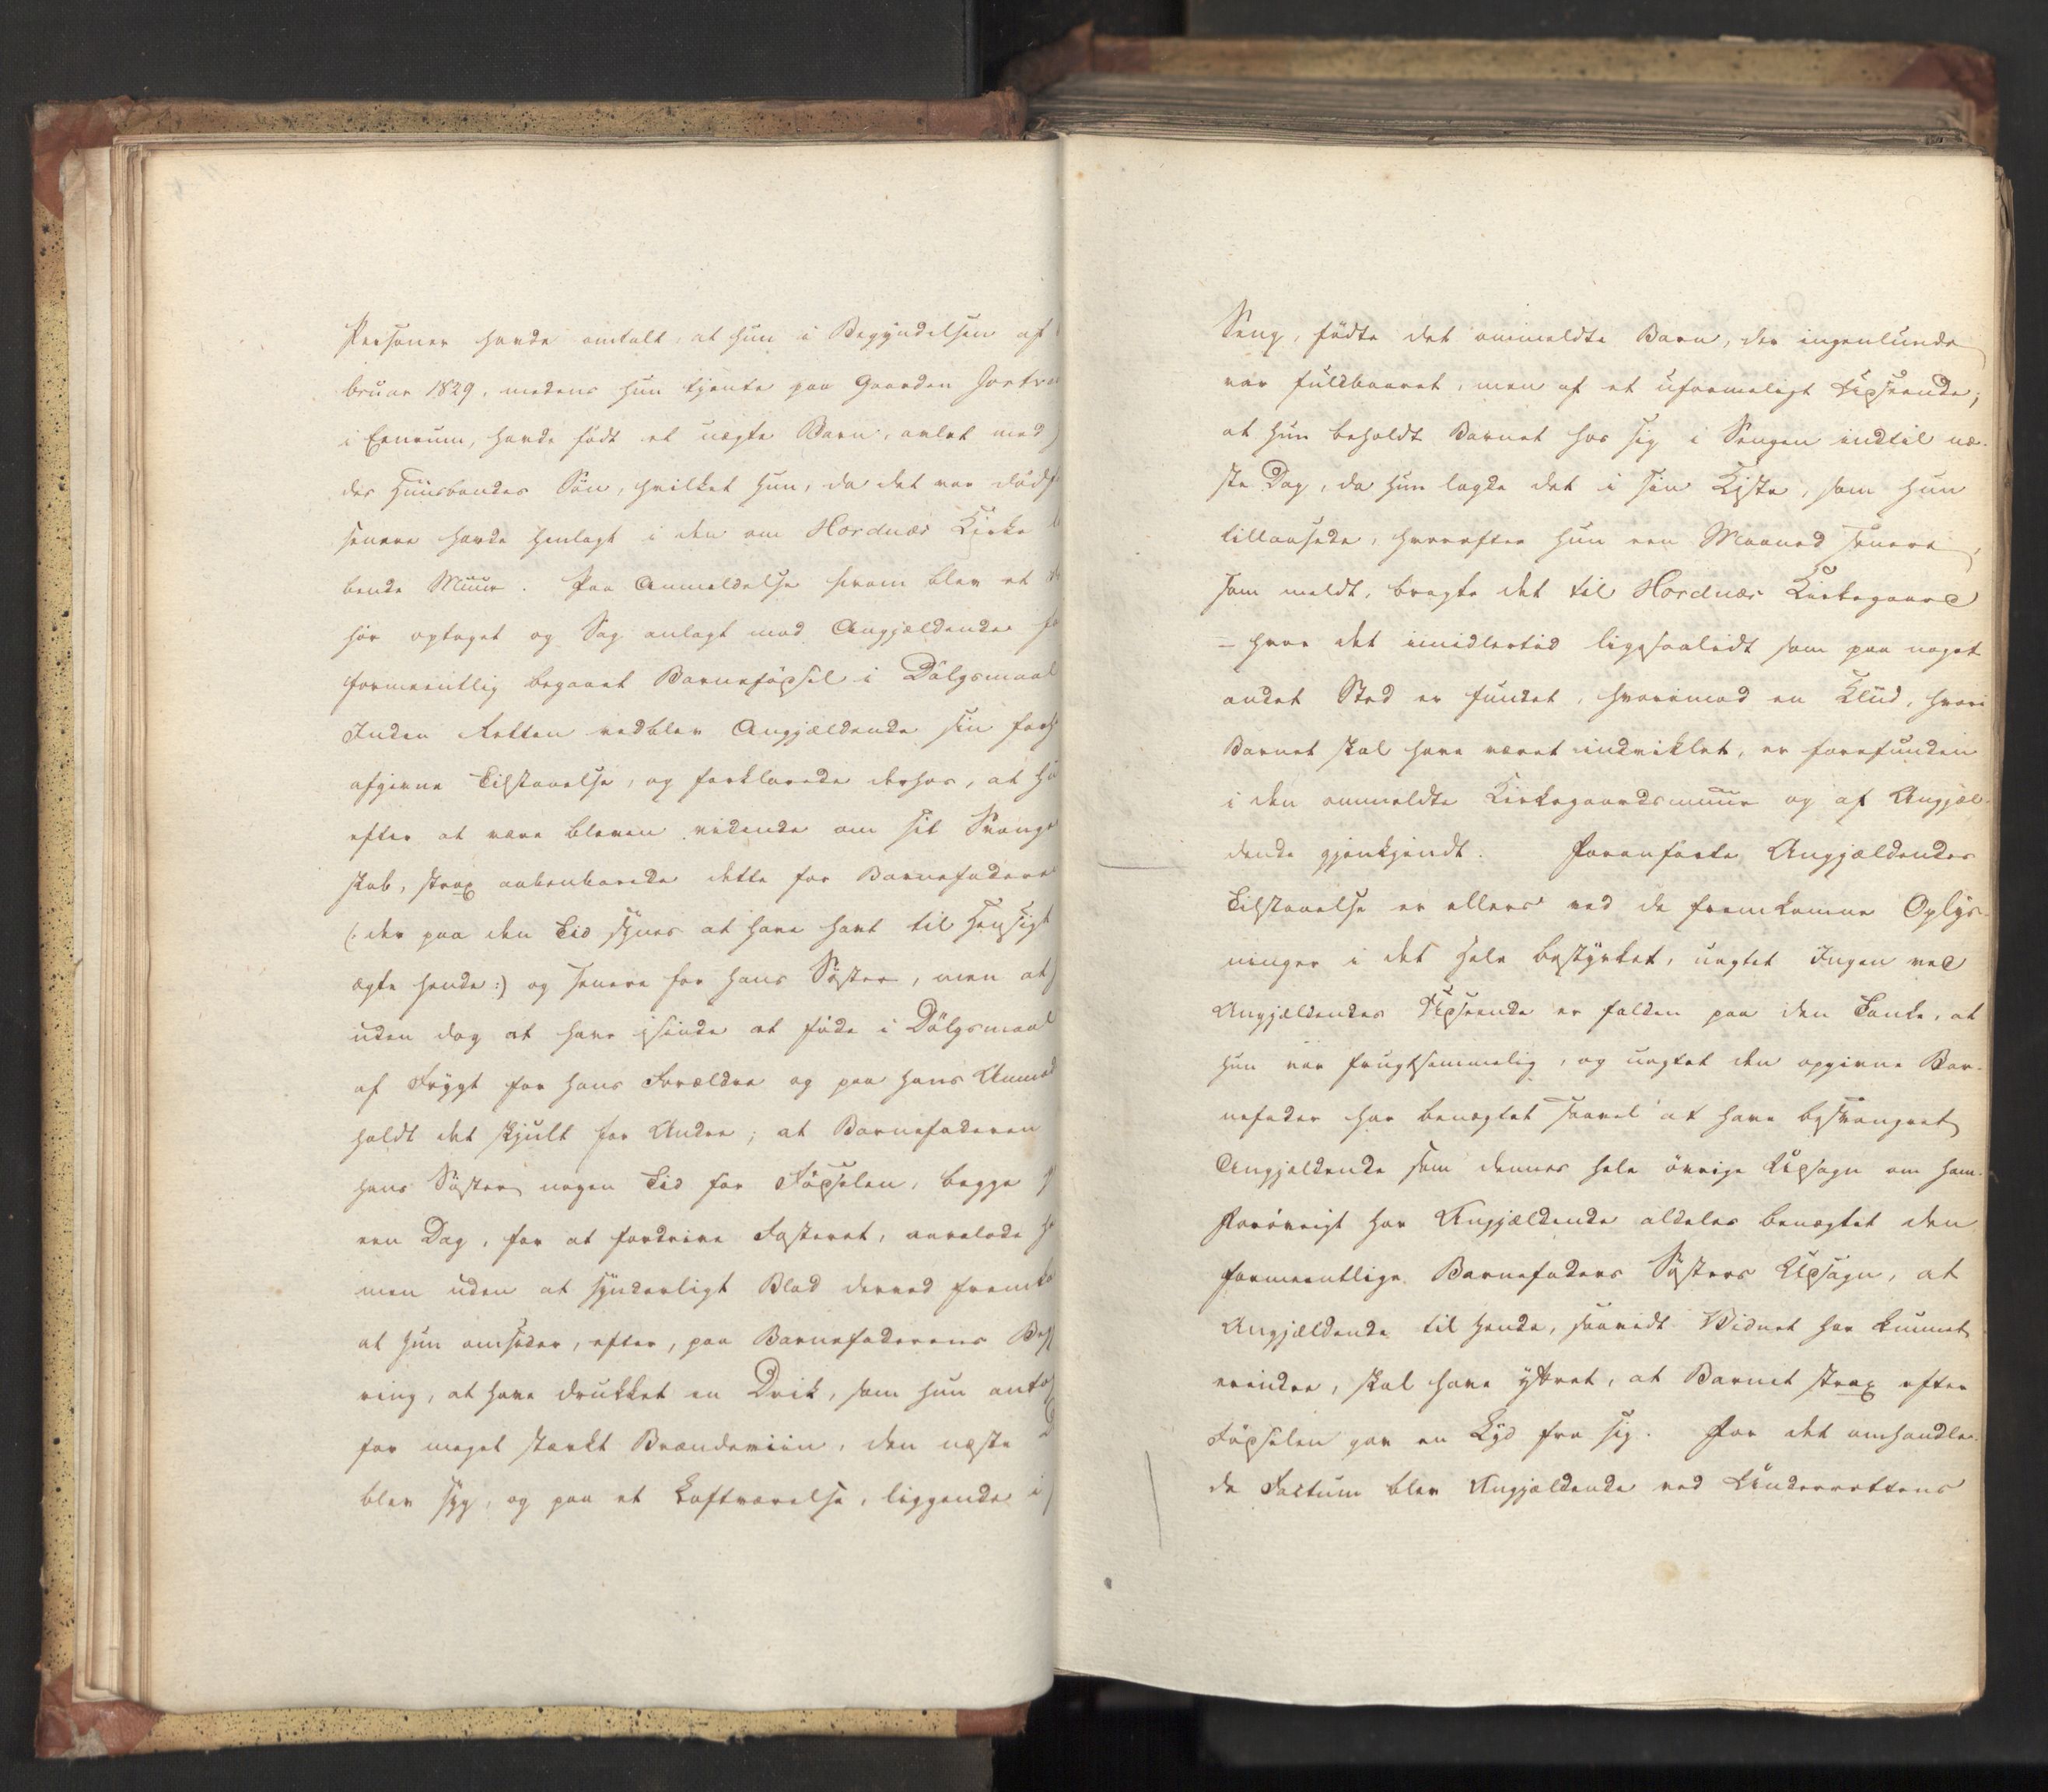 Personer havde omtalt, at hun i Begyndelsen af
bruar 1829, medens hun tjente paa Gaarden
i Eenrum, havde født et uægte Barn, avlet med
des Huusbondes Søn, hvilket hun, da det var dødf
senere havde henlagt i den om Hordnæs Kirke
bende Muur. Paa Anmeldelse herom blev et
hør optaget og Sag anlagt mod Angjældende fo
formeentlig begaaet Barnefødsel i Dølgsmaal
Inden Retten vedblev Angjældende sin forh
afgivne Tilstaaelse, og forklarede derhos, at hu
efter at være bleven vidende om sit Svanger
skab, strax aabenbarede dette for Barnefaderen
(: der paa den Tid synes at have havt til Hensigt
ægte hende :) og senere for hans Søster, men at
uden dog at have isinde at føde i Dølgsmaal
af Frygt for hans Forældre og paa hans Anmod
holdt det skjult for Andre; at Barnefaderen
hans Søster nogen Tid for Fødselen, begge
een Dag, for at fordrive Fosteret, aarelode h
men uden at synderligt Blod derved fremko
at hun omsider, efter, paa Barnefaderens Beg
ring, at have drukket en Drik, som hun antog
for meget stærkt Brændeviin, den næste D
blev syg, og paa et Loftværelse, liggende i
Seng, fødte det ommeldte Barn, der ingenlunde
var fuldbaaret, men af et uformeligt Udseende;
at hun beholdt Barnet hos sig i Sengen indtil næ-
ste Dag, da hun lagde det i sin Kiste, som hun
tillaasede, hvorefter hun een Maaned senere,
som meldt, bragte det til Hordnæs Kirkegaard
– hvor det imidlertid ligesaalidt som paa noget
andet Sted er fundet, hvorimod en Klud, hvori
Barnet skal have været indviklet, er forefunden
i den ommeldte Kirkegaardsmuur og af Angjæl-
dende gjenkjendt. Foranførte Angjældendes
Tilstaaelse er ellers ved de fremkomne Oplys-
ninger i det Hele bestyrket, uagtet Ingen ved
Angjældendes Udseende er falden paa den Tanke, at
hun var frugtsommelig, og uagtet den opgivne Bar-
nefader har benægtet saavel at have besvangret
Angjældende som dennes hele øvrige Udsagn om ham.
Forøvrigt har Angjældende aldeles benægtet den
formeentlige Barnefaders Søsters Udsagn, at
Angjældende til hende, saavidt Vidnet har kunnet
erindre, skal have yttret, at Barnet strax efter
Fødselen gav en Lyd fra sig. For det omhandle-
de Factum blev Angjældende ved Underrettens